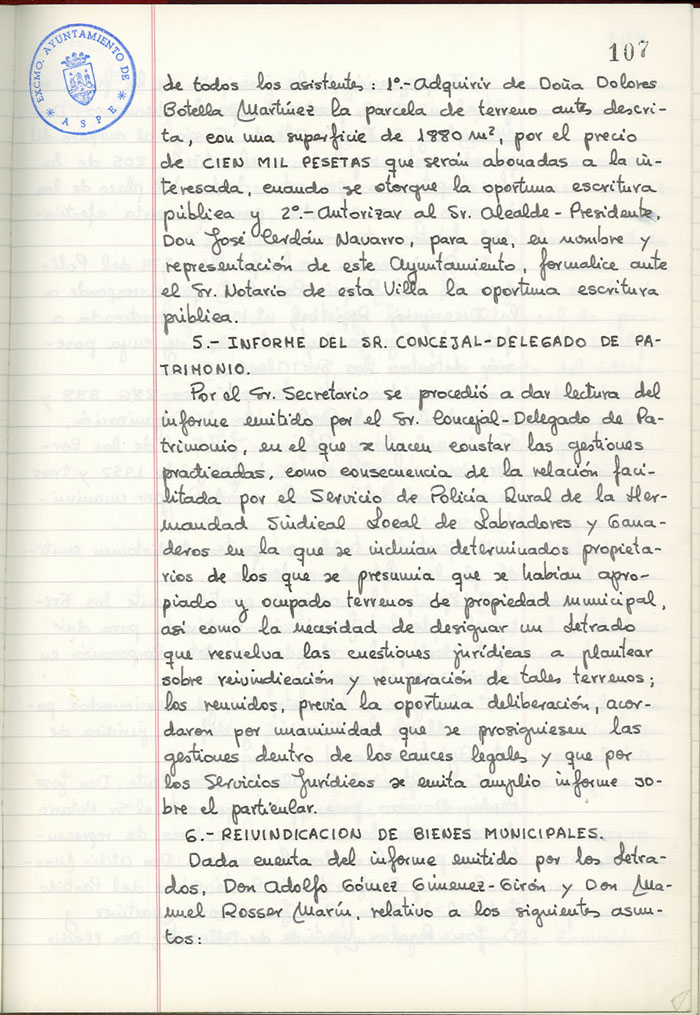 EXCMO. AYUNTAMIENTO DE
ASPE
107
de todos los asistentes: 1º.- Adquirir de Doña Dolores
Botella Martínez la parcela de terreno antes descri-
ta, con una superficie de 1880 m², por el precio
de CIEN MIL PESETAS que serán abonadas a la in-
teresada, cuando se otorgue la oportuna escritura
pública y 2º.- Autorizar al Sr. Alcalde-Presidente,
Don José Cerdán Navarro, para que, en nombre y
representación de este Ayuntamiento, formalice ante
el Sr. Notario de esta Villa la oportuna escritura
pública.
5.- INFORME DEL SR. CONCEJAL-DELEGADO DE PA-
TRIMONIO.
Por el Sr. Secretario se procedió a dar lectura del
informe emitido por el Sr. Concejal-Delegado de Pa-
trimonio, en el que se hacen constar las gestiones
practicadas, como consecuencia de la relación faci-
litada por el Servicio de Policía Rural de la Her-
mandad Sindical Local de Labradores y Gana-
deros en la que se incluían determinados propieta-
rios de los que se presumía que se habían apro-
piado y ocupado terrenos de propiedad municipal,
así como la necesidad de designar un Letrado
que resuelva las cuestiones jurídicas a plantear
sobre reivindicación y recuperación de tales terrenos;
los reunidos, previa la oportuna deliberación, acor-
daron por unanimidad que se prosiguiesen las
gestiones dentro de los cauces legales y que por
los Servicios Jurídicos se emita amplio informe so-
bre el particular.
6.- REIVINDICACION DE BIENES MUNICIPALES.
Dada cuenta del informe emitido por los Letra-
dos, Don Adolfo Gómez Gimenez-Girón y Don Ma-
nuel Rosser Marín, relativo a los siguientes asun-
tos: